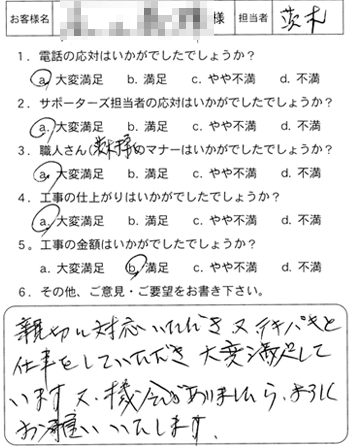 お客様名 様 担当者 茨木
1．電話の応対はいかがでしたでしょうか？
a. 大変満足 b. 満足 c. やや不満 d. 不満
2．サポーターズ担当者の応対はいかがでしたでしょうか？
a. 大変満足 b. 満足 c. やや不満 d. 不満
3．職人さん( 様)のマナーはいかがでしたでしょうか？
a. 大変満足 b. 満足 c. やや不満 d. 不満
4．工事の仕上がりはいかがでしたでしょうか？
a. 大変満足 b. 満足 c. やや不満 d. 不満
5．工事の金額はいかがでしたでしょうか？
a. 大変満足 b. 満足 c. やや不満 d. 不満
6．その他、ご意見・ご要望をお書き下さい。
親切に対応いただき又テキパキと
仕事をしていただき大変満足して
います又、機会がありましたら、よろしく
お願いいたします。